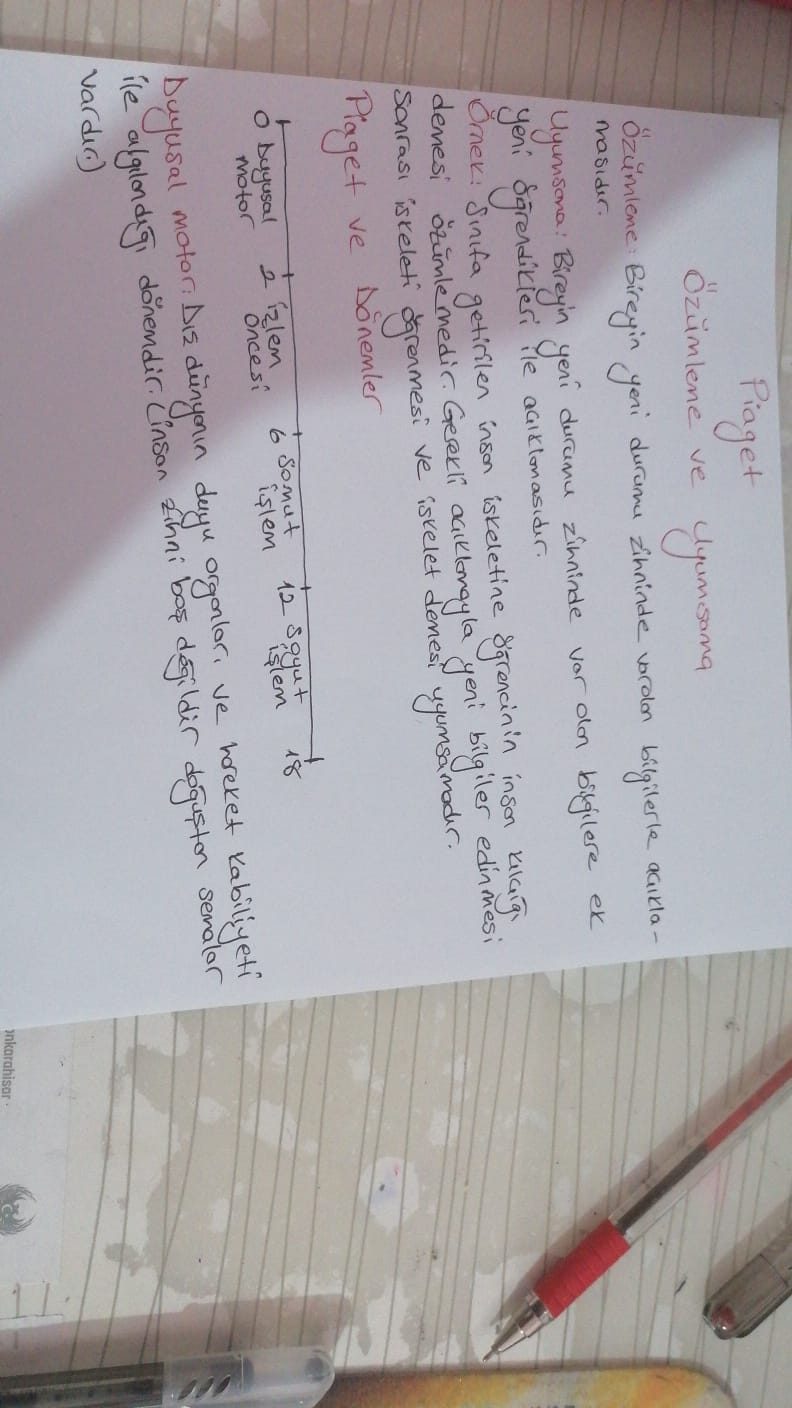 Piaget
Özümleme ve Uyumsama
Özümleme: Bireyin yeni durumu zihninde varolan bilgilerle açıkla-
masıdır.
Uyumsama: Bireyin yeni durumu zihninde var olan bilgilere ek
yeni öğrendikleri ile açıklamasıdır.
Örnek: Sınıfa getirilen insan iskeletine öğrencinin insan kılçığı
demesi özümlemedir. Gerekli açıklamayla yeni bilgiler edinmesi
sonrası iskeleti öğrenmesi ve iskelet demesi uyumsamadır.
Piaget ve Dönemler
0 Duyusal 2 İşlem 6 Somut 12 Soyut 18
motor öncesi işlem işlem
Duyusal motor: Dış dünyanın duyu organları ve hareket kabiliyeti
ile algılandığı dönemdir. (insan zihni boş değildir doğuştan şemalar
vardır.)
nkarahisar